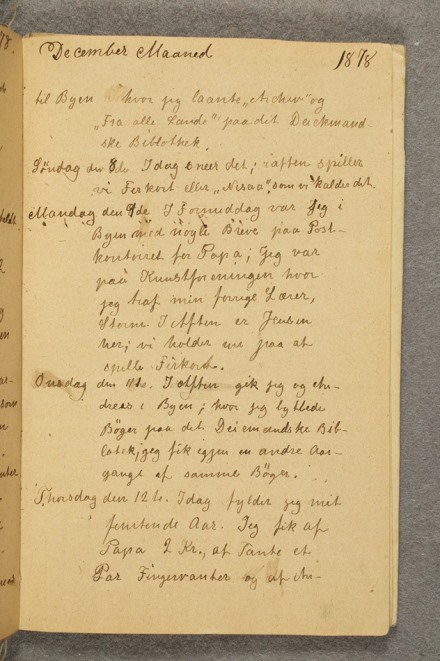 December Maaned 1878
til Byen hvor jeg laante „Archiv" og
„Fra alle Lande" paa det Deickmand-
ske Bibliothek.
Søndag den 8de Idag sneer det; iaften spiller
vi Firkort eller „Nisaa", som vi kalder det.
Mandag den 9de I Formiddag var jeg i
Byen med nogle Breve paa Post-
kontoret for Papa; Jeg var
paa Kunstforeningen hvor
jeg traf min forrige Lærer,
Storm. I Aften er Jensen
her; vi holder nu paa at
spille Firkort.
Onsdag den 11te. I Aften gik jeg og An-
dreas i Byen; hvor jeg byttede
Bøger paa det Deicmandske Bib-
liotek; jeg fik igjen en andre Aar-
gange af samme Bøger.
Thorsdag den 12te. Idag fylder jeg mit
femtende Aar. Jeg fik af
Papa 2 Kr., af Tante et
Par Fingervanter og af An-